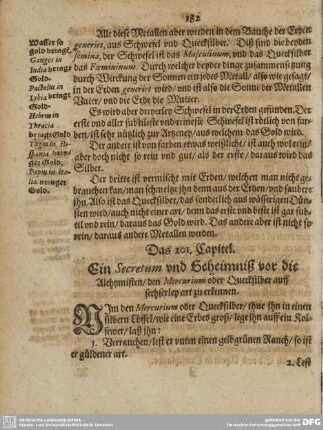 182
Alle diese Metallen aber werden in dem Bauche der Erden
generirt, aus Schwefel vnd Quecksilber. Diß sind die beyden
semina, der Schwefel ist das Masculinum, vnd das Quecksilber
das Fœmininum. Durch welcher beyder dinge zusammensetzung
durch Wirckung der Sonnen ein jedes Metall / also wie gesagt /
in der Erden generirt wird / vnd ist also die Sonne der Metallen
Vater / vnd die Erde die Mutter.
Wasser so
gold bringẽ,
Ganges in
India bringt
Gold.
Lybia bringt
Gold
Hebrus in
Thracia
bringt Gold
Tagus in Hi-
spania
Gold.
Padus in Ita-
lia bringet
Gold.
Es wird aber dreyerley Schwefel in der Erden gefunden. Der
erste vnd aller subtileste vnd reineste Schwefel ist rötlich von far-
ben / ist sehr nützlich zur Artzeney / aus welchem das Gold wird.
Der andere ist von farben etwas weißlicht / ist auch wolrein /
aber doch nicht so rein vnd gut / als der erste / daraus wird das
Silber.
Der dritte ist vermischt mit Erden / welchen man nicht ge-
brauchen kan / man schmeltze ihn denn aus der Erden / vnd saubere
ihn. Also ist das Quecksilber / das sonderlich aus wässerigen Dün-
sten wird / auch nicht einer art / denn das erste vnd beste ist gar sub-
til vnd rein / daraus das Gold wird. Das andere aber ist nicht so
rein / daraus andere Metallen werden.
Das 101. Capitel.
Ein Secretum vnd Geheimniß vor die
Alchymisten / den Mercurium oder Quecksilber auff
sechserley art zu erkennen.
NIm den Mercurium oder Quecksilber / thue ihn in einen
silbern Löffel / wie eine Erbes groß / lege ihn auff ein Kol-
fewer / laß ihn:
1. Verrauchen / lest er vnten einen gelbgrünen Rauch / so ist
er güldener art.
2. Lest